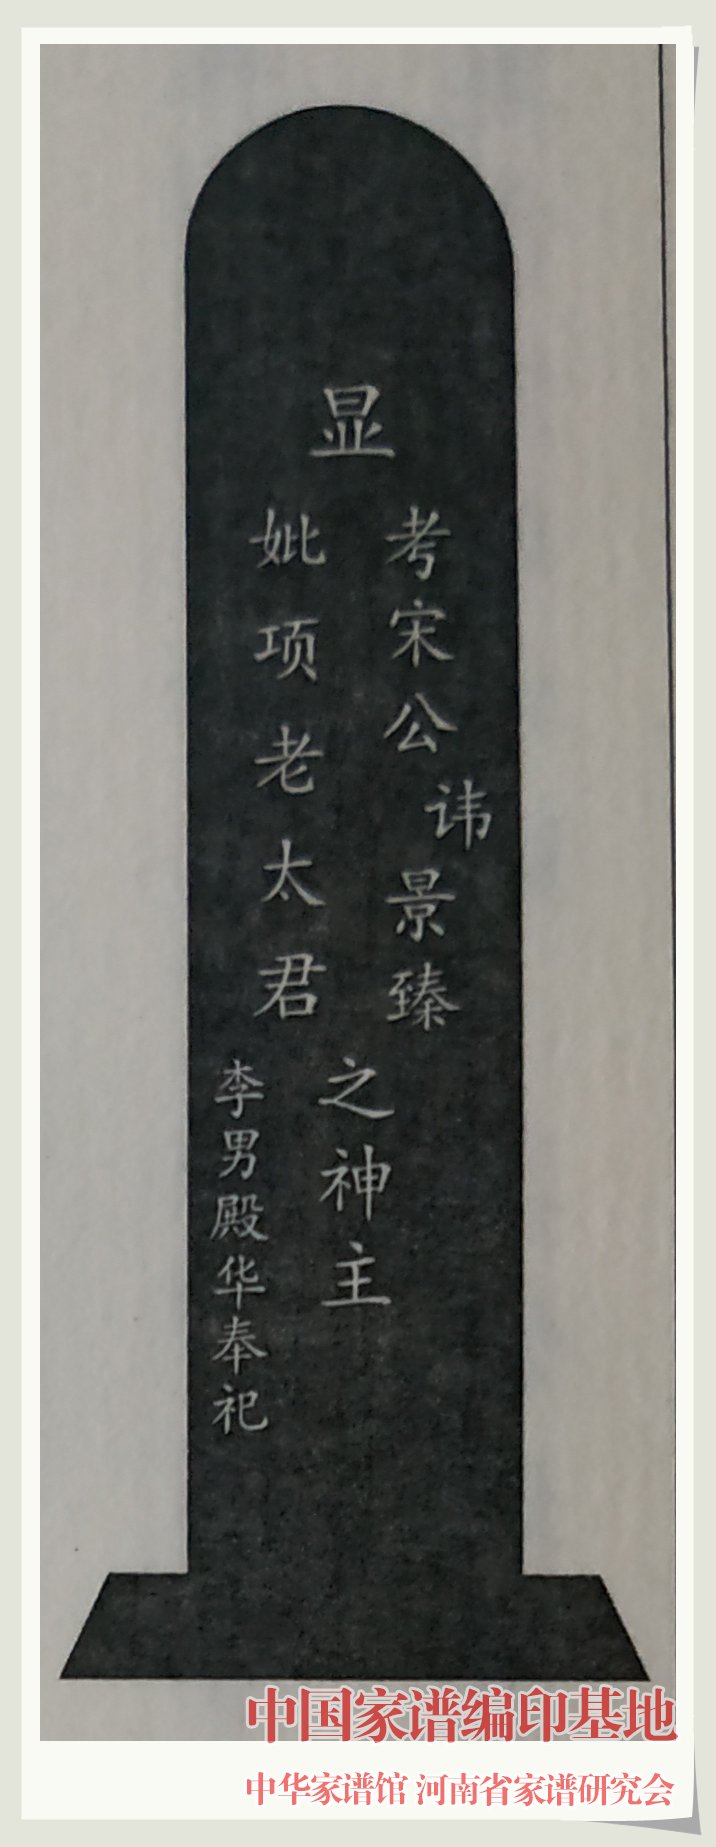 显
考宋公讳景臻
妣项老太君
之神主
李男殿华奉祀
中国家谱编印基地
中华家谱馆 河南省家谱研究会